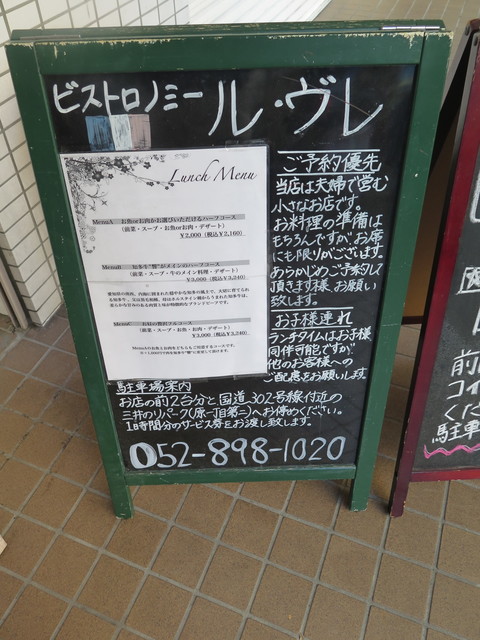 ビストロノミー ル・ヴレ
Lunch Menu
MenuA お魚orお肉がお選びいただけるハーフコース
(前菜・スープ・お魚orお肉・デザート)
¥2,000 (税込¥2,160)
MenuB 知多牛"響"がメインのハーフコース
(前菜・スープ・牛のメイン料理・デザート)
¥3,000 (税込¥3,240)
MenuC
(前菜・スープ・お魚・お肉・デザート)
¥3,000 (税込¥3,240)
ご予約優先
当店は夫婦で営む
小さなお店です。
お料理の準備は
もちろんですがお席
にも限りがございます。
あらかじめご予約して
頂きます様、お願い
致します。
お子様連れ
ランチタイムはお子様
同伴可能ですが
他のお客様への
ご配慮をお願いします。
駐車場案内
お店の前2台分と国道302号線付近の
三井のリパーク(原一丁目第二)へお停めください。
1時間分のサービス券をお渡し致します。
052-898-1020
前
コイ
くだ
駐車